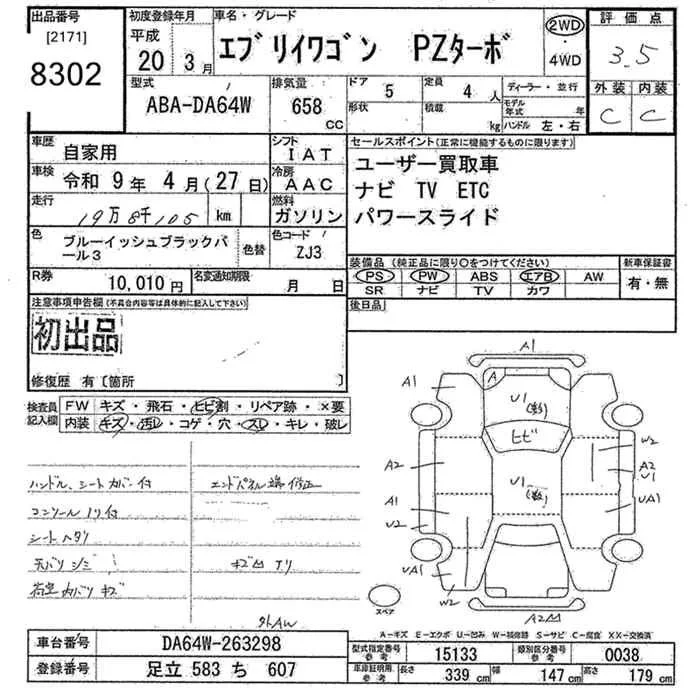 出品番号
[2171]
8302
初度登録年月
平成
20 3月
車名・グレード
エブリイワゴン PZターボ
2WD
4WD
評価点
3.5
外装 内装
C C
型式
ABA-DA64W
排気量
658
CC
ドア
5
定員
4 人
形状
積載
kg
ディーラー・並行
モデル年式 年
ハンドル 左・右
車歴
自家用
シフト
IAT
車検
令和 9年 4月(27日)
冷房
AAC
走行
19万8千105 km
燃料
ガソリン
色
ブルーイッシュブラックパール3
色替
色コード
ZJ3
R券
10,010円
名変通知期限
月 日
セールスポイント(正常に機能するものに限ります)
ユーザー買取車
ナビ TV ETC
パワースライド
装備品(純正品に限り○をつけてください)
PS PW ABS エアB AW
SR ナビ TV カワ
新車保証書
有・無
後日品
注意事項申告欄(不具合内容等は具体的に記入して下さい)
初出品
修復歴 有〔箇所 〕
検査員記入欄
FW キズ・飛石・ヒビ割・リペア跡・×要
内装 キズ・汚レ・コゲ・穴・スレ・キレ・破レ
ハンドル、シートカバー付
コンソールノリ付
シートヘタリ
天バリシミ
荷室内バリキズ
エンドパネル端修正
キズ凹アリ
外AW
A1
A1
A
U1
ヒビ
U1
A2
A1
U2
UA1
W2
W2
A2
U1
UA1
A2凹
スペア
A-キズ E-エクボ U-凹み W-補修跡 S-サビ C-腐食 XX-交換済
車台番号
DA64W-263298
登録番号
足立 583 ち 607
型式指定番号 参考
15133
類別区分番号 参考
0038
車庫証明用 参考
長さ 339 cm
幅 147 cm
高さ 179 cm